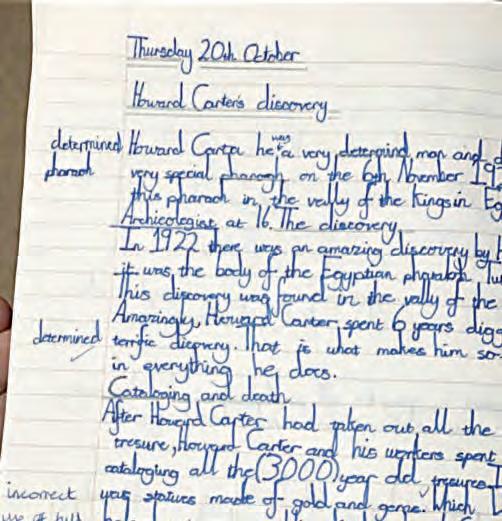 Thursday 20th October
Howard Carter's discovery
determined Howard Carter he was a very determind man and
pharaoh very special pharogh on the 6th November
this pharaoh in the vally of the Kings in
Archicologist at 16. The discovery
In 1922 there was an amazing discovery by
it was the body of the Egyptian pharaoh
This discovery was found in the vally of the
Amazingly, Howard Carter spent 6 years
determined terrific dicovery. That is what makes him so
in everything he does.
Cataloging and death
After Howard Carter had taken out all the
tresure, Howard Carter and his workers spent
cataloging all the (3000) year old tresures
incorrect was statues made of gold and gems. which